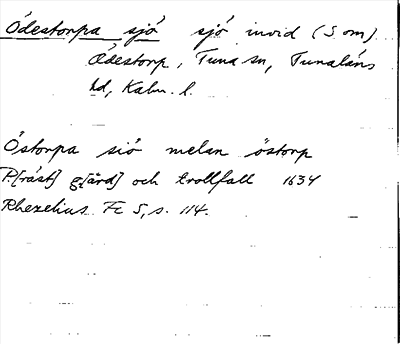 Ödestorpa sjö sjö invid (S om)
Ödestorp, Tuna sn, Tunaläns
hd, Kalm. l.
Östorpa siö melan östorp
P[räst] g[ård] och trollfall 1634
Rhezelius Fc 5, s. 114.